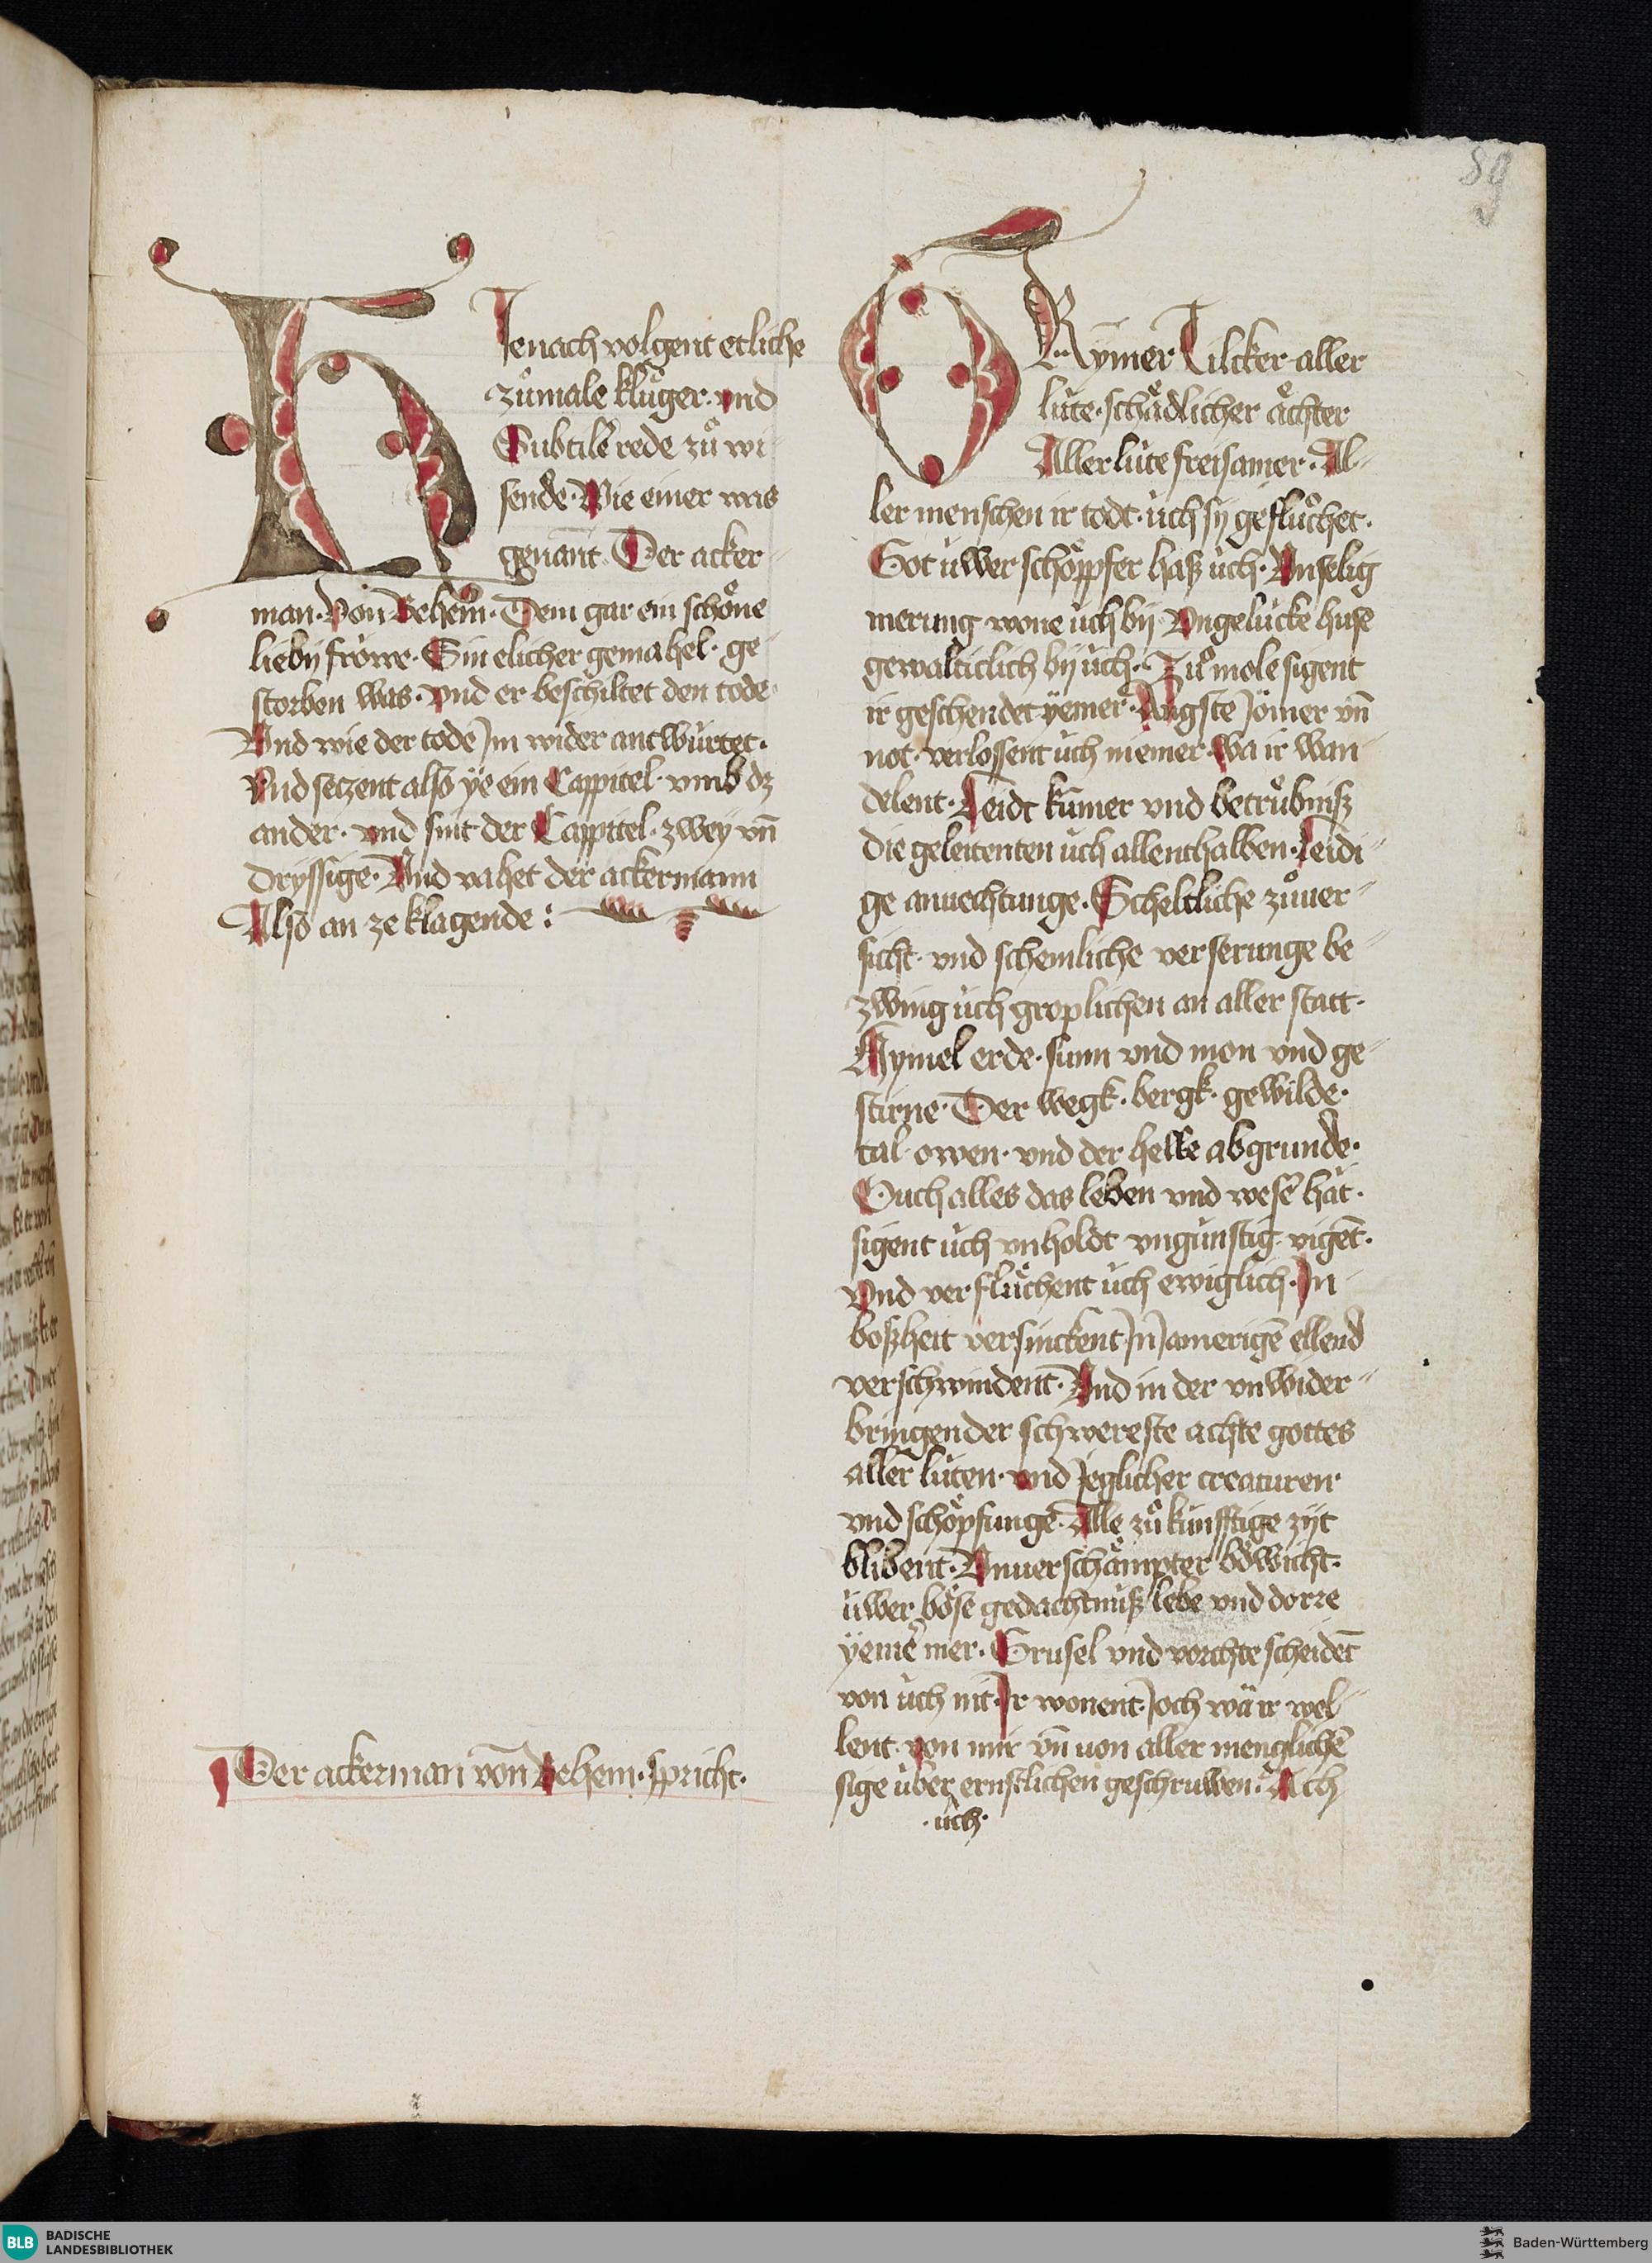 89
HIenach volgent etliche
zuͦmale kluͦger. vnd
Subtile rede zuͦ wi-
sende. Wie einer was
genant. Der acker-
man. Von Behem. Dem gar ein schoͤne
lieby froͤwe. Sin elicher gemahel. ge-
storben was. vnd er beschiltet den tode.
Vnd wie der tode Jm wider antwürtet.
Vnd setzent also ye ein Cappitel. vmb dz
ander. vnd sint der Cappitel. zwey vn̄
Dryssige. Vnd vahet der ackermann
Also an ze klagende :
Der ackerman von Behem. spricht.
GRy̋mer Tilcker aller
lüte. schaͤdlicher aͤchter
Aller lüte freisamer. Al-
ler menschen ir todt. üch sy gefluͦchet.
Got üwer schoͤppfer haß üch. Vnselig
merung wone üch by. Vngelücke huse
gewalticlich by üch. Zuͦ mole sigent
ir geschendet yemer. Angste Jömer vn̄
not. verlossent üch niemer. wa ir wan-
delent. Leidt kumer vnd betruͤbniß
die geleitenten üch allenthalben. Leidi-
ge anuechtunge. Scheltliche zuͦuer-
sicht. vnd schemliche verserunge be-
zwing üch groplichen an aller statt.
Hymel erde. sunn vnd mon vnd ge-
stirne. Der wegk. bergk. gewilde.
tal. owen. vnd der helle abgrunde.
Ouch alles das leben vnd wesē hät.
sigent üch vnholdt vngünstig vigēt.
Vnd verfluͤchent üch ewiglich. Jn
boßheit versinckent Jn Jamerigē ellend
verschwindent. Vnd in der vnwider-
bringender schwereste achte gottes
aller lüten. vnd Jeglicher creaturen
vnd schoͤpfunge. Alle zuͦkünfftige zyt
blibent. Vnuerschaͤmpter boͤwicht.
üwer boͤse gedachtnuß lebe vnd dorre
yemē mer. Grusel vnd vorchte scheidet
von üch nit. Ir wonent. Joch wä ir wel-
lent. von mir vn̄ von aller menglichē
sige über ernstlichen geschruwen. Ach
. üch.
BLB
BADISCHE
LANDESBIBLIOTHEK
Baden-Württemberg